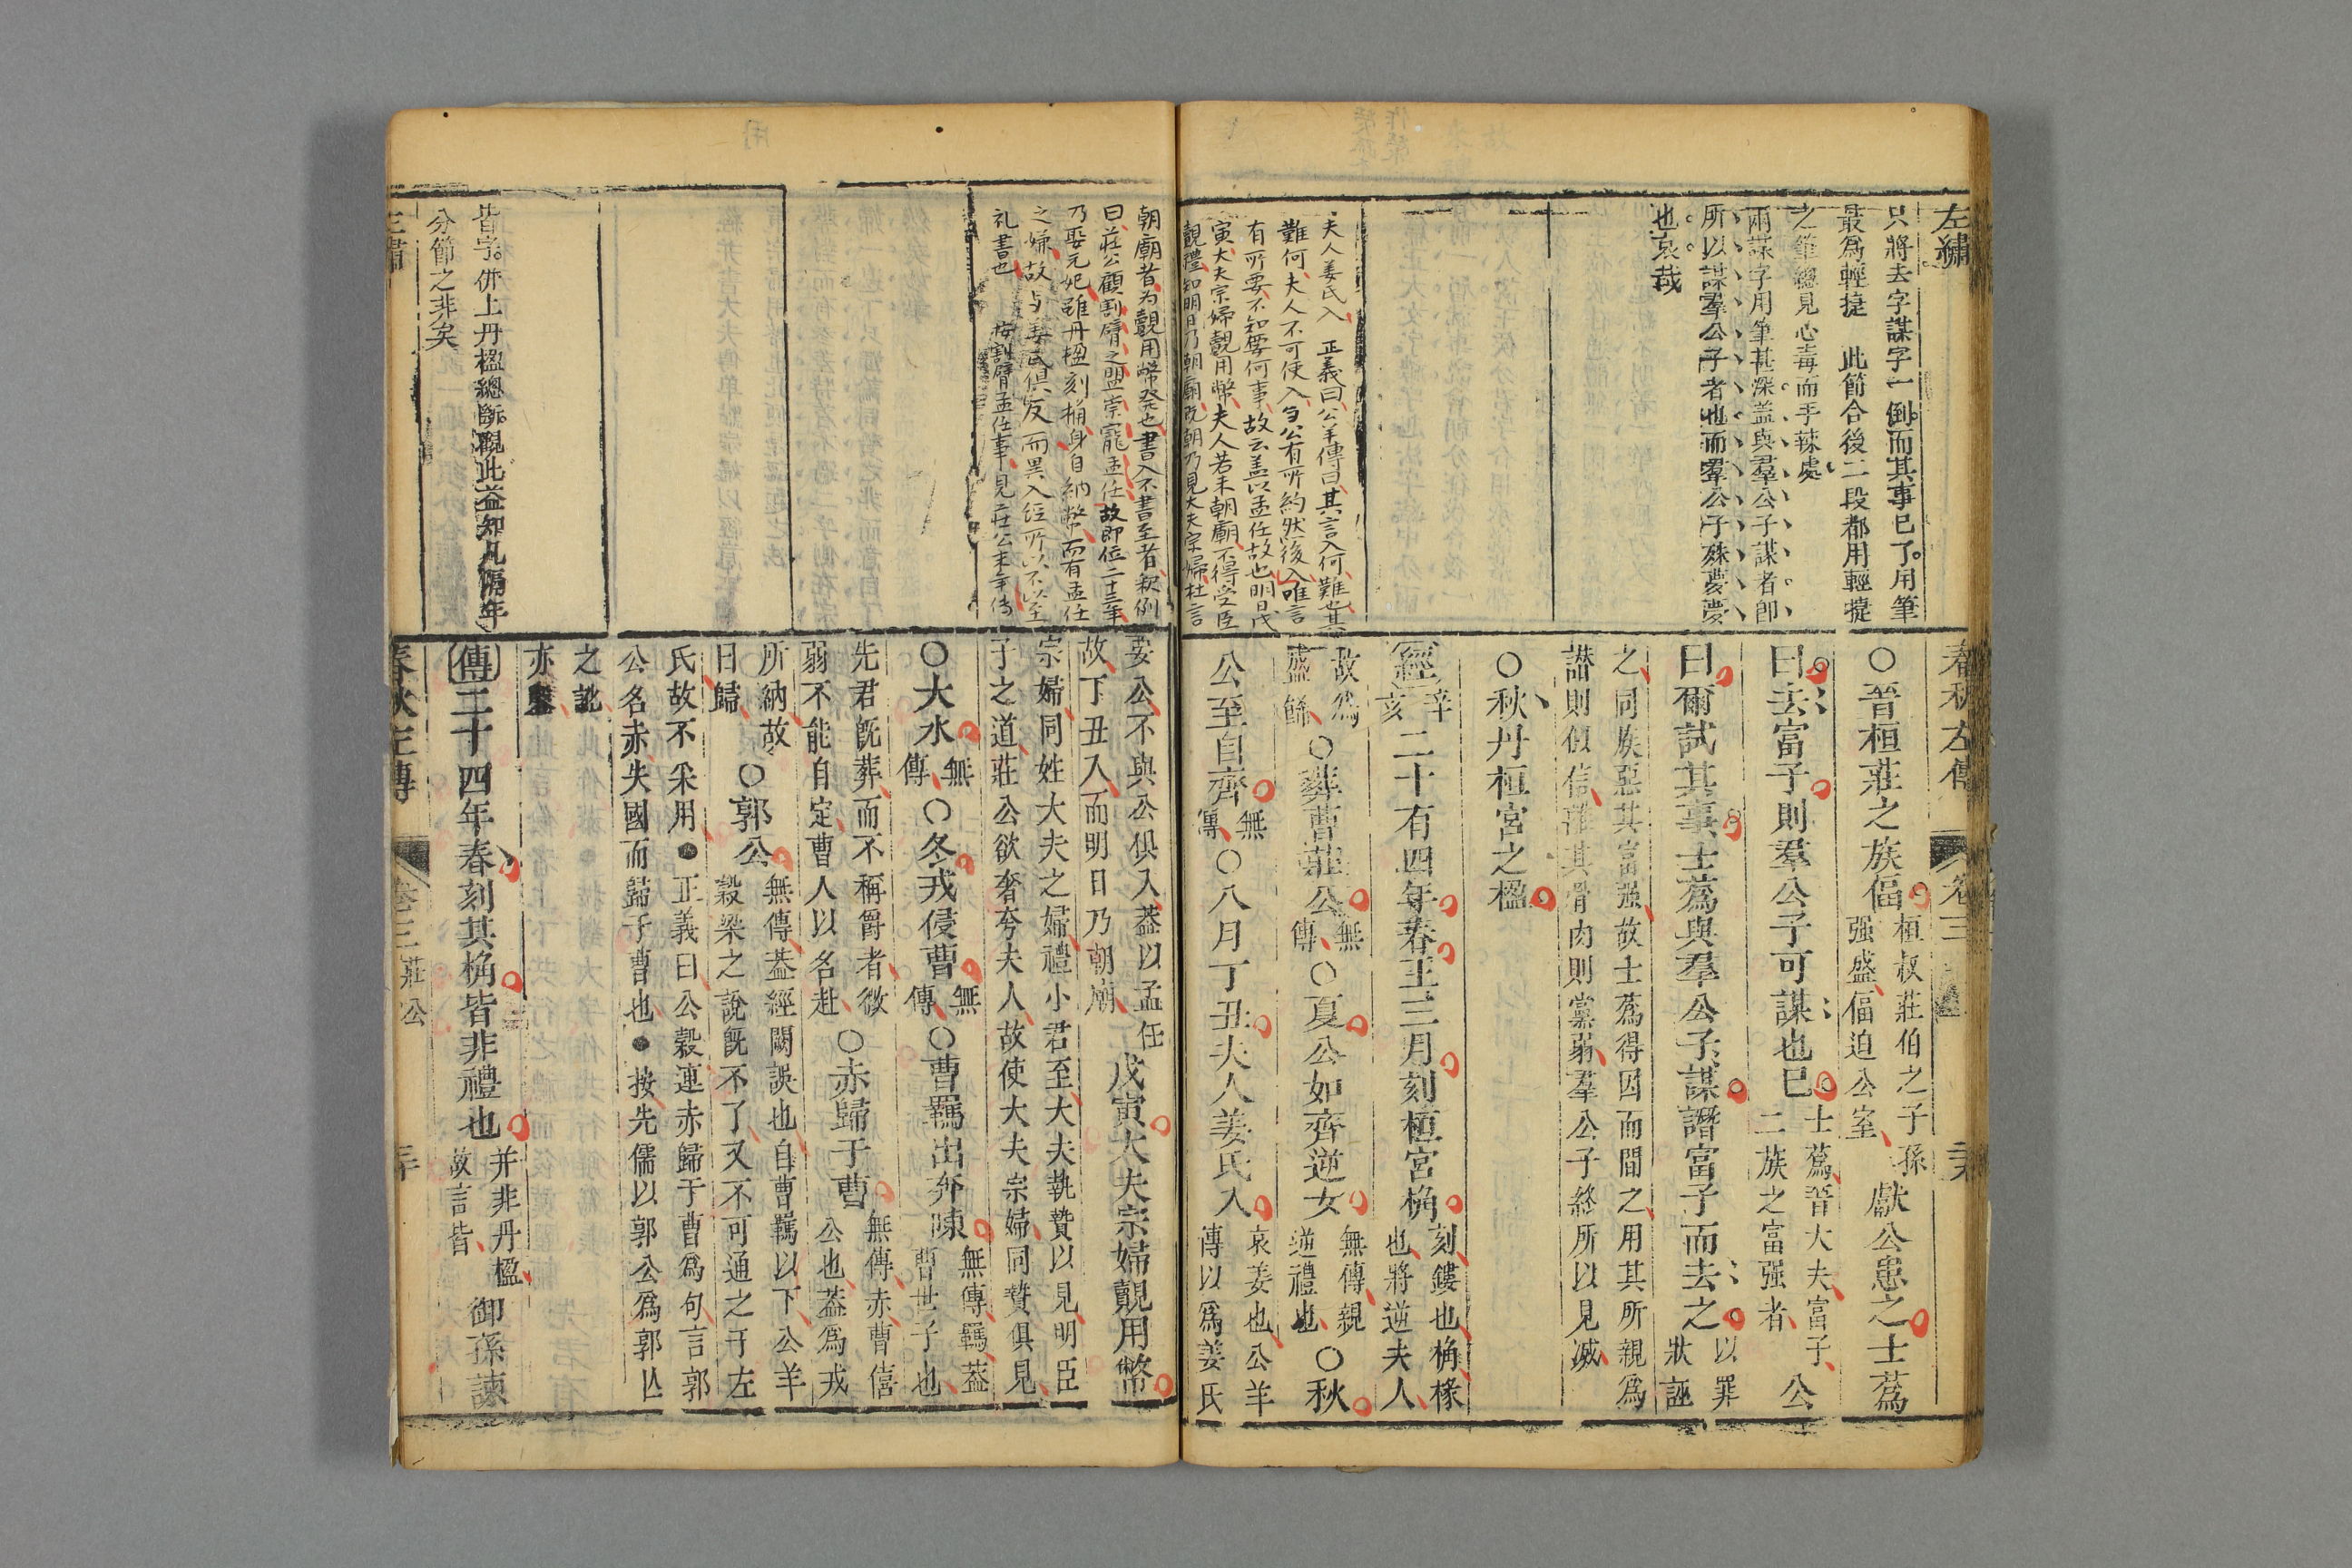 左繡
只將去字謀字一倒而其事已了用筆
最爲輕捷 此節合後二段都用輕捷
之筆總見心毒而手辣處
兩謀字用筆甚深盖與羣公子謀者卽
所以謀羣公子者也而羣公子殊夢夢
也哀哉
夫人姜氏入 正義曰公羊傳曰其言入何難也其
難何夫人不可使入與公有所約然後入唯言
有所要不知要何事故云盖以孟任故也明日戊
寅大夫宗婦覿用幣夫人若未朝廟不得受臣
覿禮知明日乃朝廟既朝乃見大夫宗婦杜言
春秋左傳 卷三
○晉桓莊之族偪桓叔莊伯之子孫
强盛偪迫公室獻公患之士蔿
曰去富子則羣公子可謀也已士蔿晉大夫富子
二族之富强者公
曰爾試其事士蔿與羣公子謀譖富子而去之以罪
狀誣
之同族惡其富强故士蔿得因而間之用其所親爲
譖則似信離其骨肉則黨弱羣公子終所以見滅
○秋丹桓宮之楹
經辛
亥二十有四年春王三月刻桓宮桷刻鏤也桷椽
也將逆夫人
故爲
盛餙○葬曹莊公無
傳○夏公如齊逆女無傳親
逆禮也○秋
公至自齊無
傳○八月丁丑夫人姜氏入哀姜也公羊
傳以爲姜氏
朝廟者为覿用幣發也書入不書至者釈例
曰莊公顧割臂之盟崇寵孟任故即位二十三年
乃娶元妃雖丹楹刻桷身自納幣而有孟任
之嫌故与姜氏俱反而異入经所以不以至
礼書也 按割臂孟任事見莊公末年传
皆字併上丹楹總斷觀此益知凡隔年
分節之非矣
要公不與公俱入葢以孟任
故丁丑入而明日乃朝廟戊寅大夫宗婦覿用幣
宗婦同姓大夫之婦禮小君至大夫執贄以見明臣
子之道莊公欲奢夸夫人故使大夫宗婦同贄俱見
○大水無
傳○冬戎侵曹無
傳○曹羈出奔陳無傳羈葢
曹世子也
先君旣葬而不稱爵者微
弱不能自定曹人以名赴○赤歸于曹無傳赤曹僖
公也葢爲戎
所納故
曰歸○郭公無傳葢經闕誤也自曹羈以下公羊
穀梁之說旣不了又不可通之于左
氏故不采用●正義曰公穀連赤歸于曹爲句言郭
公名赤失國而歸于曹也●按先儒以郭公爲郭亾
之訛
亦鑿
傳二十四年春刻其桷皆非禮也并非丹楹
故言皆御孫諫
春秋左傳 卷三 莊公